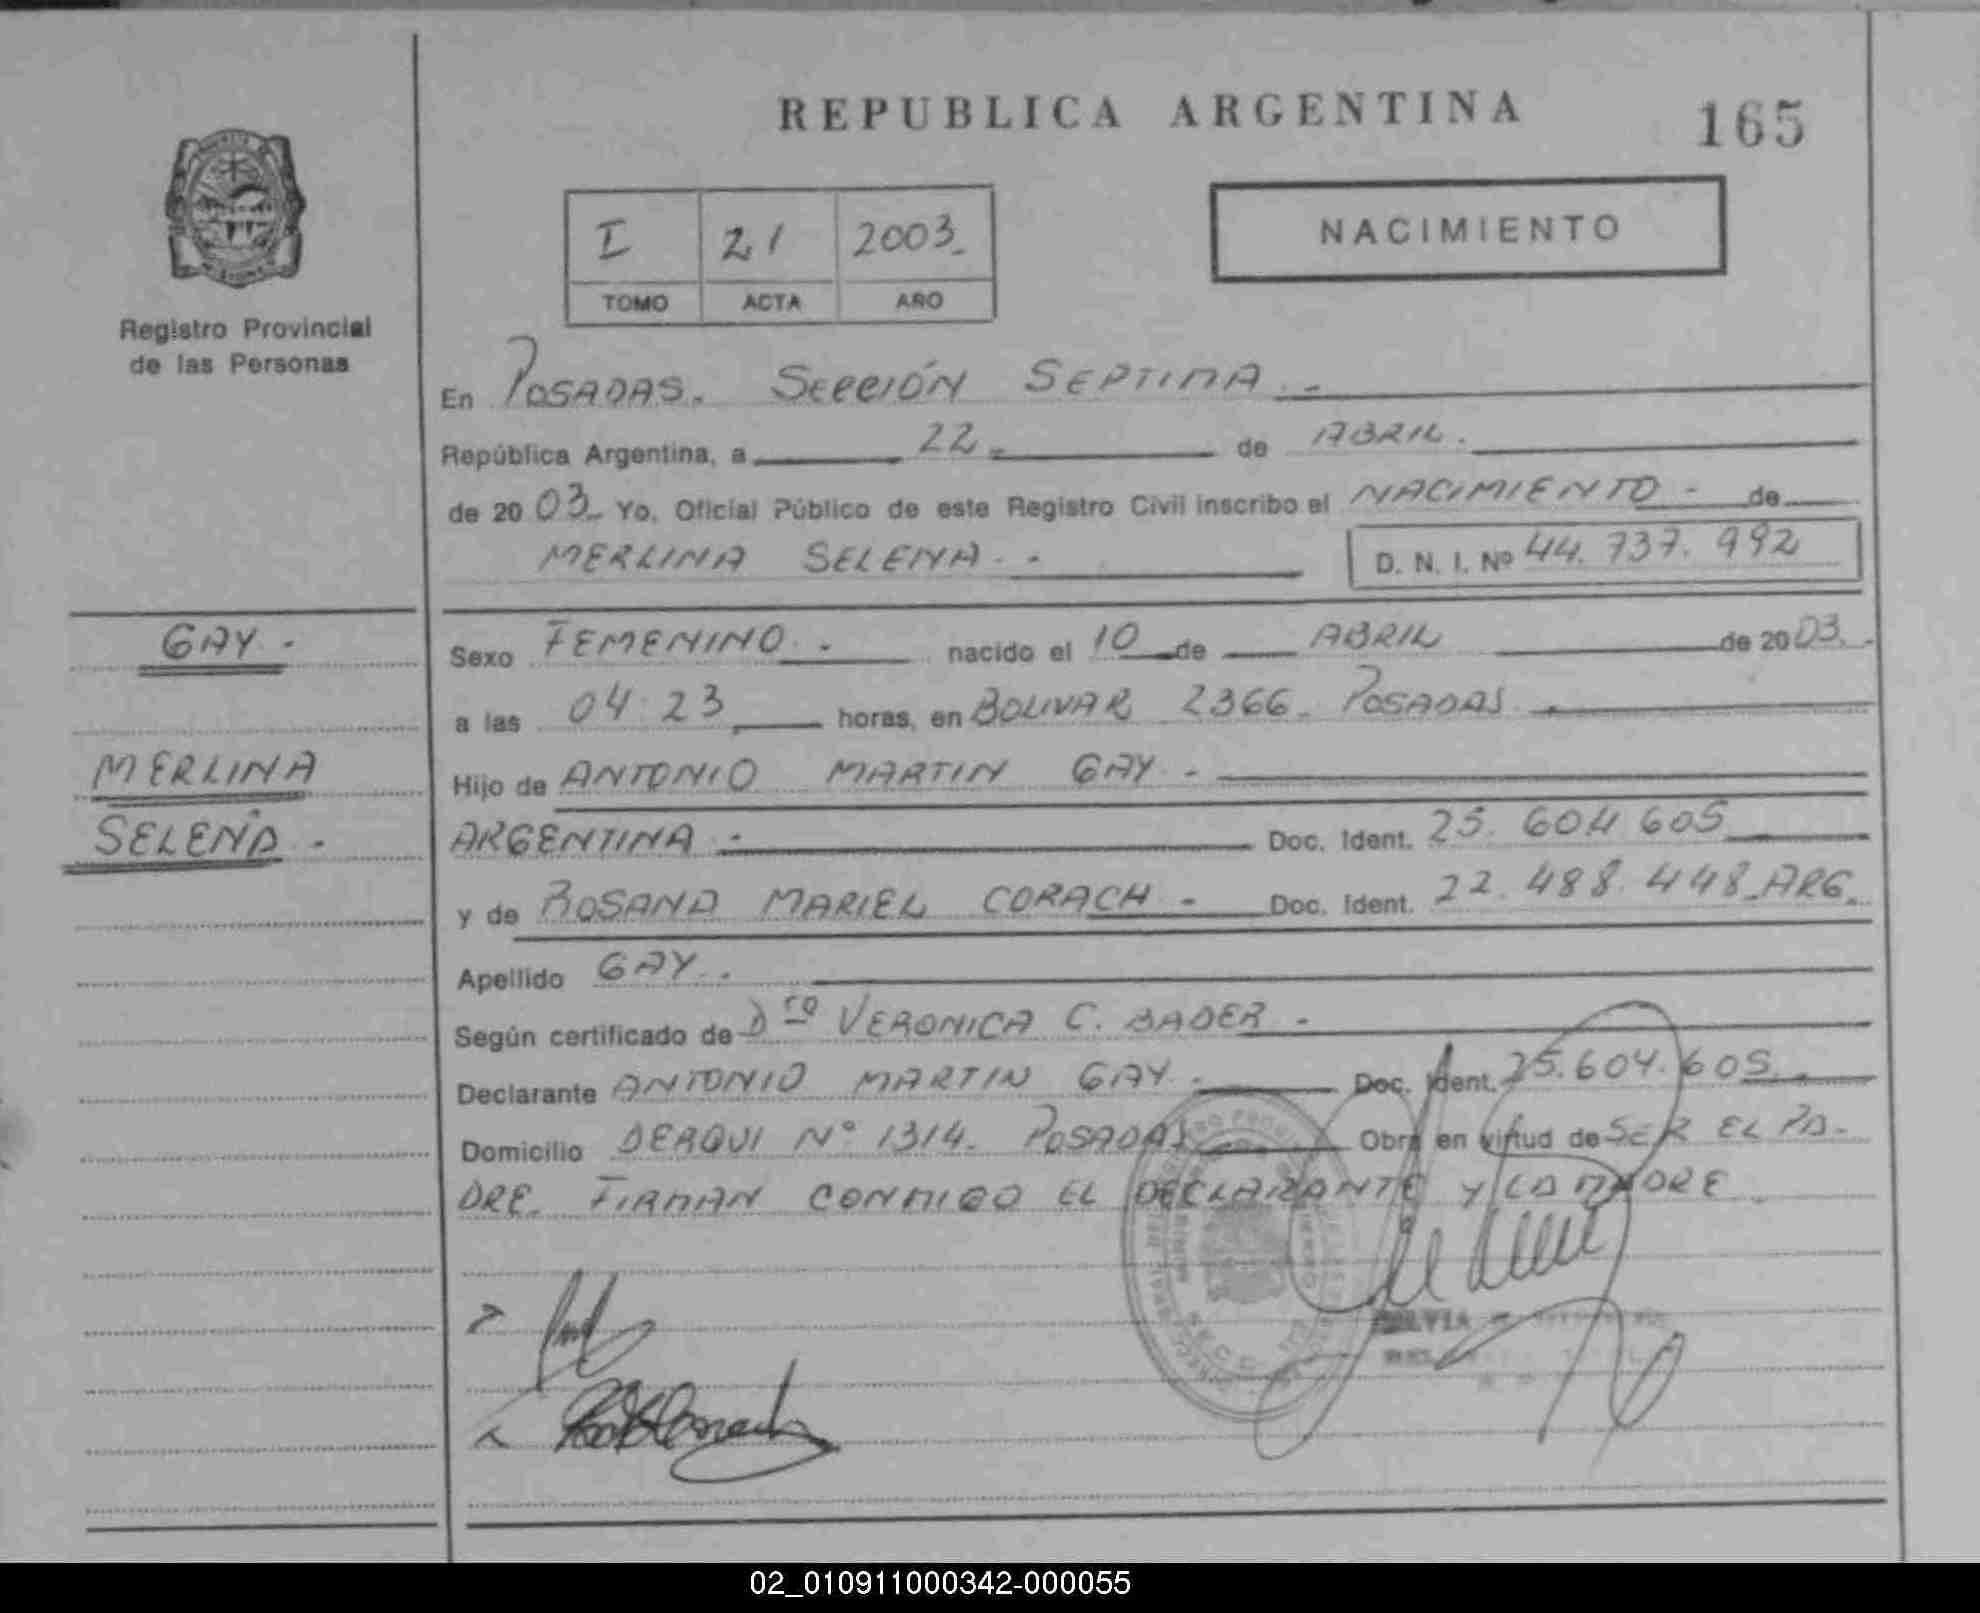 REPUBLICA ARGENTINA
165
I 21 2003
TOMO ACTA AÑO
NACIMIENTO
Registro Provincial
de las Personas
En POSADAS. SECCIÓN SEPTIMA.-
República Argentina, a 22 de ABRIL.
de 2003 Yo, Oficial Público de este Registro Civil inscribo el NACIMIENTO - de
MERLINA SELENA.- D. N. I. Nº 44.737.992
GAY.-
Sexo FEMENINO.- nacido el 10 de ABRIL de 2003.-
a las 04:23 horas, en BOLIVAR 2366. POSADAS.
MERLINA
Hijo de ANTONIO MARTIN GAY.-
SELENA.-
ARGENTINA.- Doc. Ident. 25.604.605
y de ROSANA MARIEL CORACH.- Doc. Ident. 22.488.448 ARG.
Apellido GAY.
Según certificado de Dra VERONICA C. BADER.-
Declarante ANTONIO MARTIN GAY.- Doc. Ident. 25.604.605
Domicilio DERQUI Nº 1314. POSADAS Obra en virtud de SER EL PA-
DRE. FIRMAN CONMIGO EL DECLARANTE Y LA MADRE.
SILVIA
02_010911000342-000055